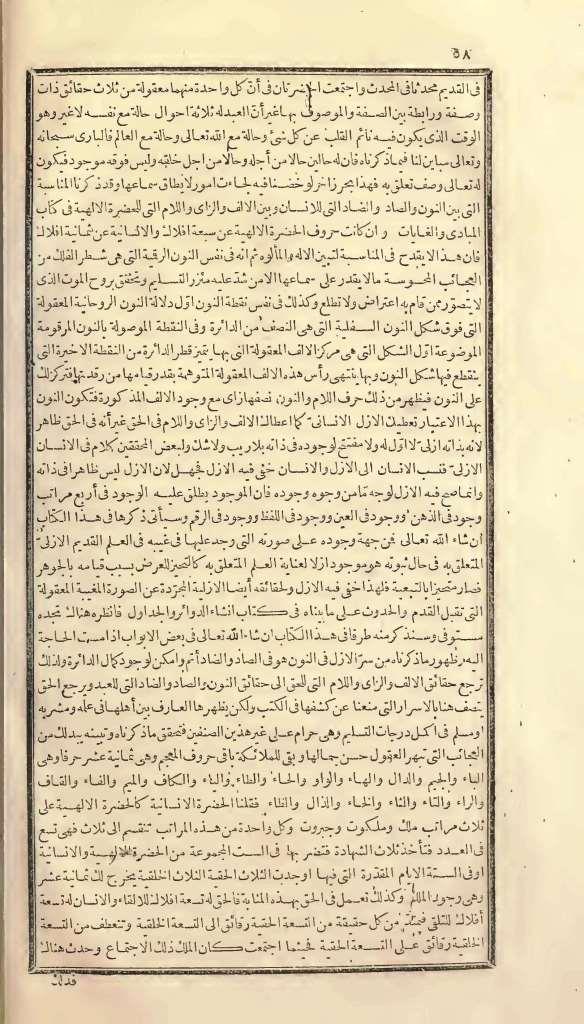 ٥٨
فى القديم محدثا فى المحدث واجتمعت الحضرتان فى أنّ كل واحدة منهما معقولة من ثلاث حقائق ذات
وصفة ورابطة بين الصفة والموصوف بها غير أنّ العبد له ثلاثة أحوال حالة مع نفسه لا غير وهو
الوقت الذى يكون فيه نائم القلب عن كل شئ وحالة مع الله تعالى وحالة مع العالم فالبارى سبحانه
وتعالى مباين لنا فيما ذكرناه فان له حالين حالا من أجله وحالا من اجل خلقه وليس فوقه موجود فيكون
له تعالى وصف تعلق به فهذا بحر زاخر لو خضنا فيه لجاءت امور لا يطاق سماعها وقد ذكرنا المناسبة
التى بين النون والصاد والضاد التى للانسان وبين الالف والزاى واللام التى للحضرة الالهية فى كتاب
المبادى والغايات وان كانت حروف الحضرة الالهية عن سبعة افلاك والانسانية عن ثمانية افلاك
فان هذا لا يقدح فى المناسبة لتبين الاله والمألوه ثم انه فى نفس النون الرقمية التى هى شطر الفلك من
العجائب المحسوسة ما لا يقدر على سماعها الا من شد عليه مئزر التسليم وتحقق بروح الموت الذى
لا يتصوّر ممن قام به اعتراض ولا تطلع وكذلك فى نفس نقطة النون اوّل دلالة النون الروحانية المعقولة
التى فوق شكل النون السفلية التى هى النصف من الدائرة وفى النقطة الموصولة بالنون المرقومة
الموضوعة اوّل الشكل التى هى مركز الالف المعقولة التى بها يتميز قطر الدائرة من النقطة الاخيرة التى
ينقطع فيها شكل النون وبها ينتهى رأس هذه الالف المعقولة المتوهمة بقدر قيامها من رقدتها فترتكز لك
على النون فيظهر من ذلك حرف اللام والنون نصفها زاى مع وجود الالف المذكورة فتكون النون
بهذا الاعتبار تعطيك الازل الانسانى كما اعطاك الالف والزاى واللام فى الحق غير أنه فى الحق ظاهر
لانه بذاته ازلىّ لا اوّل له ولا مفتتح لوجوده فى ذاته بلا ريب ولا شك ولبعض المحققين كلام فى الانسان
الازلىّ فنسب الانسان الى الازل والانسان خفى فيه الازل فجهل لان الازل ليس ظاهرا فى ذاته
وانما صح فيه الازل لوجه مّا من وجوه وجوده فان الموجود يطلق عليه الوجود فى أربع مراتب
وجود فى الذهن ووجود فى العين ووجود فى اللفظ ووجود فى الرقم وسيأتى ذكرها فى هذا الكتاب
ان شاء الله تعالى فمن جهة وجوده على صورته التى وجد عليها فى عينه فى العلم القديم الازلىّ
المتعلق به فى حال ثبوته هو موجود ازلا لعناية العلم المتعلق به كالتحيز للعرض بسبب قيامه بالجوهر
فصار متحيزا بالتبعية فلهذا خفى فيه الازل ولحقائقه أيضا الازلية المجرّدة عن الصورة المعينة المعقولة
التى تقبل القدم والحدوث على ما بيناه فى كتاب انشاء الدوائر والجداول فانظره هناك تجده
مستوفى وسنذكر منه طرفا فى هذا الكتاب ان شاء الله تعالى فى بعض الابواب اذا مست الحاجة
اليه وظهور ما ذكرناه من سرّ الازل فى النون هو فى الصاد والضاد أتم وامكن لوجود كمال الدائرة وكذلك
ترجع حقائق الالف والزاى واللام التى للحق الى حقائق النون والصاد والضاد التى للعبد ويرجع الحق
يتصف هنا بالاسرار التى منعنا عن كشفها فى الكتب ولكن يظهرها العارف بين أهلها فى علمه ومشربه
او مسلم فى اكمل درجات التسليم وهى حرام على غير هذين الصنفين فتحقق ما ذكرناه وتبينه يبد لك من
العجائب التى تبهر العقول حسن جمالها وبقى للملائكة باقى حروف المعجم وهى ثمانية عشر حرفا وهى
الباء والجيم والدال والهاء والواو والحاء والطاء والياء والكاف والميم والفاء والقاف
والراء والتاء والثاء والخاء والذال والظاء فقلنا الحضرة الانسانية كالحضرة الالهية على
ثلاث مراتب ملك وملكوت وجبروت وكل واحدة من هذه المراتب تنقسم الى ثلاث فهى تسع
فى العدد فتأخذ ثلاث الشهادة فتضربها فى الست المجموعة من الحضرة الالهية والانسانية
او فى الستة الايام المقدّرة التى فيها اوجدت الثلاث الحقية الثلاث الخلقية يخرج لك ثمانية عشر
وهى وجود الملك وكذلك تعمل فى الحق بهذه المثابة فالحق له تسعة افلاك للالقاء والانسان له تسعة
أفلاك للتلقى فتمتدّ من كل حقيقة من التسعة الحقية رقائق الى التسعة الخلقية وتنعطف من التسعة
الخلقية رقائق على التسعة الحقية فحيثما اجتمعت كان الملك ذلك الاجتماع وحدث هناك
فذلك